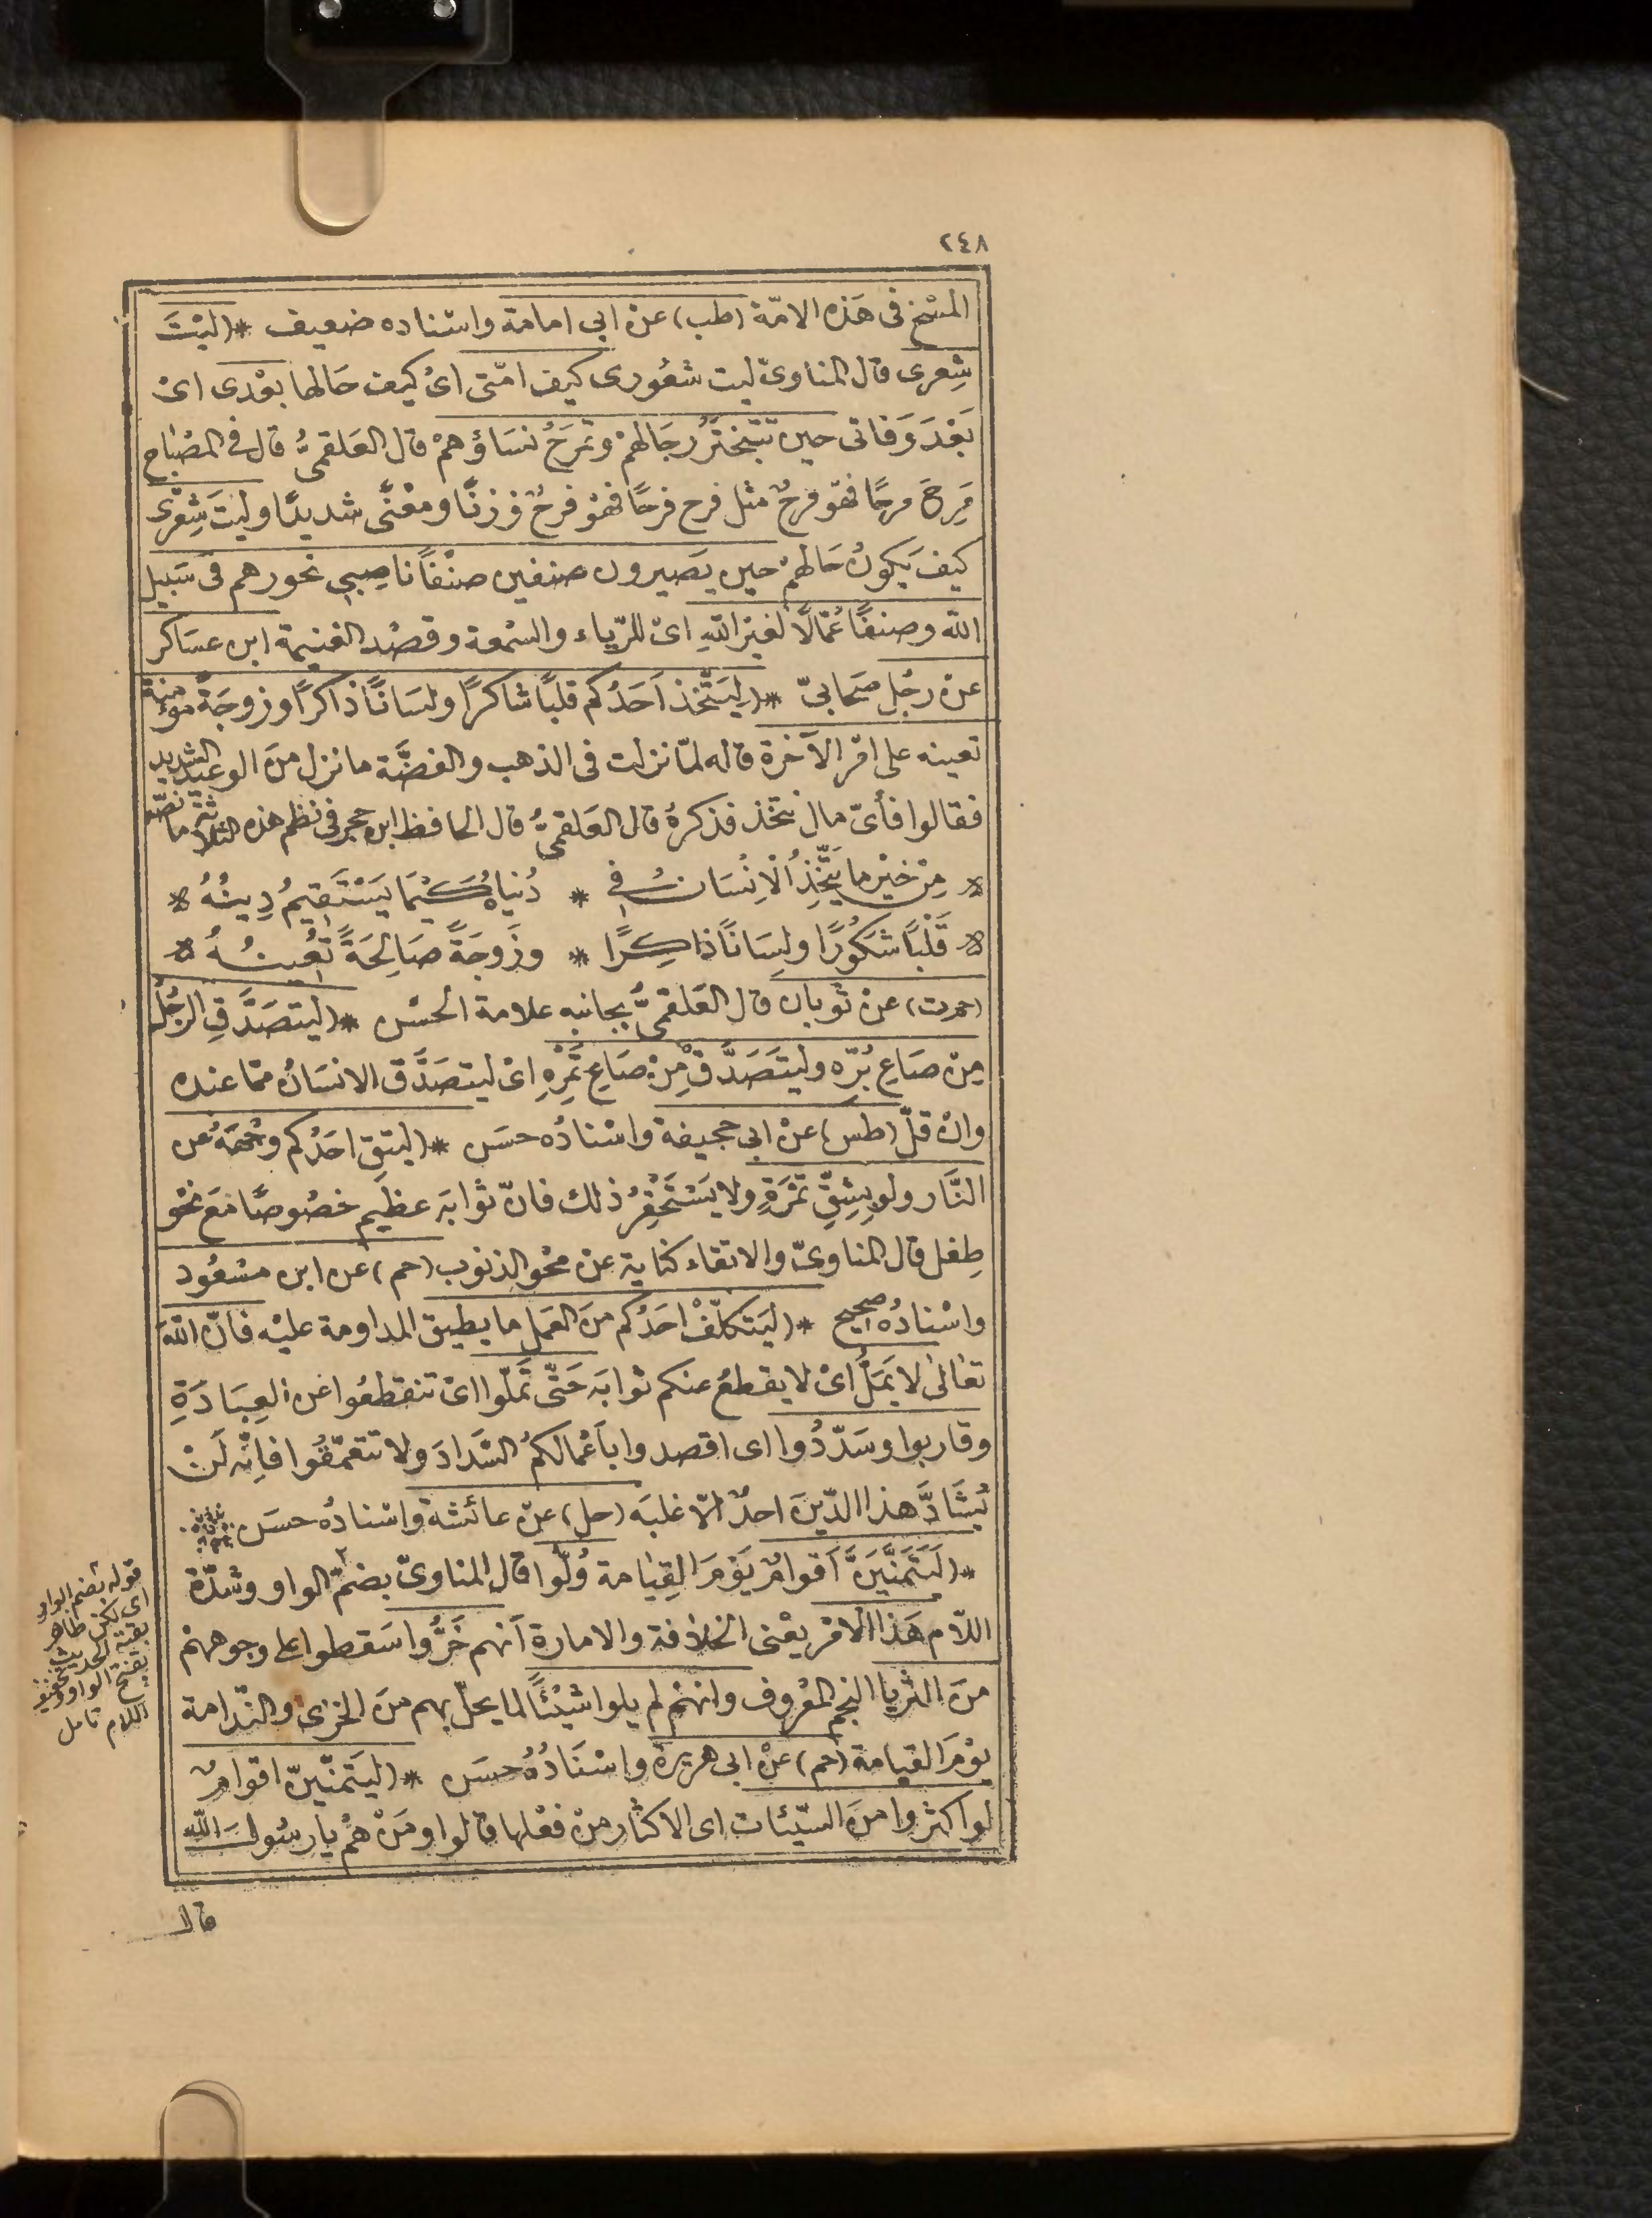 ٢٤٨
المسْخ فى هَذه الامّة (طب) عنْ ابى امامة واسْناده ضعيف * (ليْتَ
شِعرى قال المناوىّ ليت شعُورى كيف امّتى اىْ كيف حَالها بعْدى اىْ
بَعْدَ وَفاتى حين تتبختَرُ رجَالهمْ وتمرَحُ نسَاؤهمْ قال العَلقمىُّ قال فى المصْباح
مَرِحَ مرحًا فهو فرحٌ مثل فرح فرحًا فهْو فرحٌ وزنًا ومعْنًى شديدًا وليتَ شِعْرى
كيفَ يَكونُ حَالهمْ حين يصَيرون صنفين صنْفًا ناصِبى نحورهم فى سَبيل
الله وصنفًا عُمّالًا لغيْرِ اللهِ اىْ للرّياء والسّمعة وقصْد الغنيمة ابن عسَاكر
عنْ رجُل صَحابىّ * (ليَتَّخذ اَحَدُكم قلبًا شاكرًا ولسَانًا ذاكرًا وزوجَةً مؤمنةً
تعينه على امْر الآخرة قاله لمّا نزلت فى الذهب والفضَّة ما نزل منَ الوعيد الشديد
فقالوا فأىّ مال نتخذ فذكرهُ قال العَلقمىُّ قال الحافظ ابن حجر فى نظم هذه الثلاثة ما نصّه
* مِنْ خيْر ما يَتَّخِذُ الْانِسَانُ فى * دُنياهُ كَيْمَا يَسْتَقيمُ دِينُهُ *
* قَلْبًا شَكُورًا ولسَانًا ذاكِرًا * وزَوجَةً صَالحَةً تُعْينُهُ *
(حم ت) عنْ ثوبان قال العَلقمىُّ بجانبه علامة الحسْن * (ليتصَدَّقِ الرّجُل
مِنْ صَاعِ بُرّه وليتَصَدَّقْ مِنْ صَاعِ تَمْرِهِ اىْ ليتصَدَّق الانسَانُ ممّا عنده
وانْ قلّ (طس) عنْ ابى جحيفة واسْنادُه حسَن * (ليتّقِ احَدُكم وجْهَهُ عن
النَّار ولو بشِقِّ تمْرَةٍ ولا يَسْتَحْقِرُ ذلك فانّ ثوابَه عظيَم خصُوصًا مَعَ نحْو
طِفل قال المناوىّ والاتقاء كناية عنْ محْو الذنوب (حم) عن ابن مسْعُود
واسْنادُه صحيح * (ليَتكلّفْ احَدُكم منَ العَمَل ما يطيق المداومة عليْه فانّ اللهَ
تعَالى لا يمَلّ اىْ لا يقطعُ عنكم ثوابَه حَتّى تَملّوا اىْ تنقطعُوا عن العِبَادَةِ
وقاربوا وسَدّدُوا اى اقصدوا باَعْمالكمُ السّدادَ ولا تتعمّقُوا فاِنّه لَنْ
يُشَادَّ هذا الدّينَ احدٌ الّا غلبَه (حل) عنْ عائشة واسْنادُه حسَن
* (لَيَتَمَنَّيَنَّ اَقوامٌ يَوْمَ القِيامة وُلّوا قال المناوىّ بضمّ الواو وشدّة
اللّام هَذا الامْر يعْنى الخلافة والامارة اَنهم خَرُّوا سَقطوا على وجوههمْ
منَ الثريا النجم المعْروف وانهمْ لم يلوا شيْئًا لما يحلّ بهم منَ الخزى والنّدامة
يوْمَ القيامة (حم) عنْ ابى هريرة واسْنَادُهُ حسَن * (ليَتمنّينّ اقوامٌ
لو اكثروا منَ السّيئات اى الاكثار منْ فعْلها قالوا ومَنْ همْ يا رسُول اللّه
قال
قوله بضم الواو
اى لكن ظاهر
بقية الحديث
بفتح الواو وتخفيف
اللام تامل